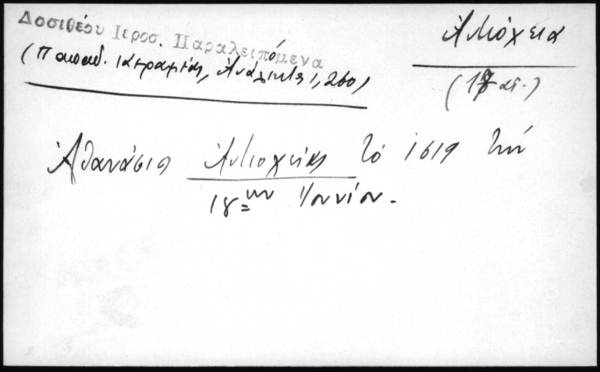 Δοσιθέου Ιεροσ. Παραλειπόμενα
Ἀντιόχεια
(Παπαδ. Κεραμεύς, Ἀνάλεκτα 1, 260)
(17 αι.)
Ἀθανάσιος Ἀντιοχείας τὸ 1619 τὴν
18ην Ἰουνίου.